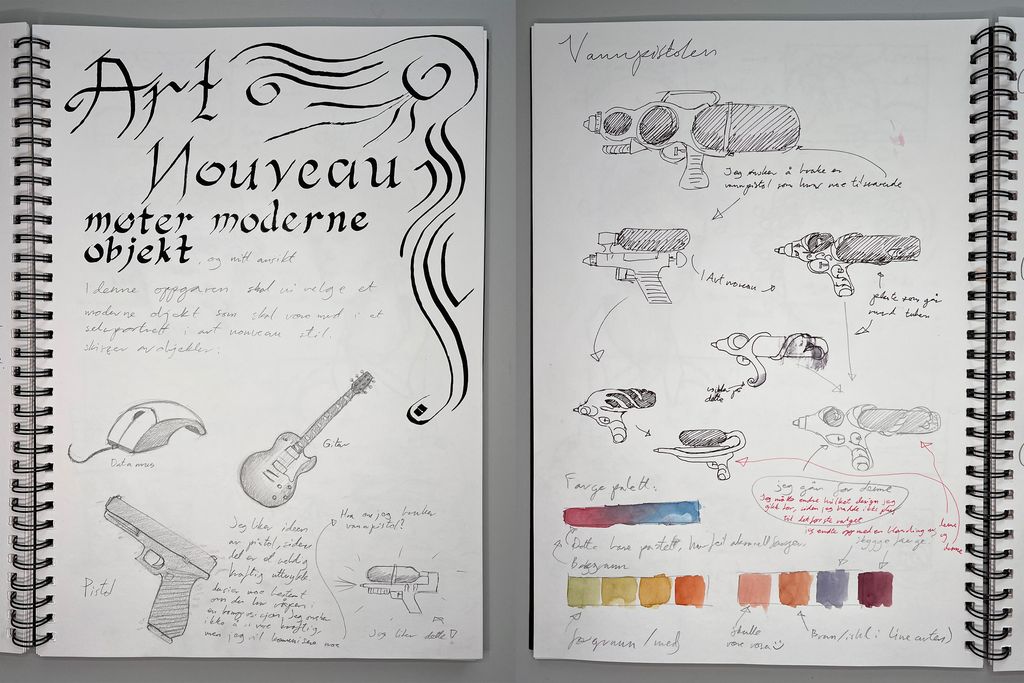 Art
Nouveau
møter moderne
objekt, og mitt ansikt
I denne oppgaven skal vi velge et
moderne objekt som skal være med i et
selvportrett i art nouveau stil.
skisser av objekter:
Datamus
Gitar
Pistol
Jeg liker ideen
av pistol, siden
det er et veldig
kraftig uttrykk
men jeg vil
Hva om jeg bruker
vannpistol?
Jeg liker dette!
Vannpistolen
Jeg ønsker å bruke en
vannpistol som har noe tilsvarende
I Art noveau
som går
rundt tuben
dette
jeg går for denne
Jeg måtte endre hvilket design jeg
gikk for, siden jeg hadde ikke plass
til det første valget
jeg endte opp med en blanding av denne
og
denne
Farge palett:
Dette bare
skygge farge
Bakgrunn
forgrunn/med
skulle
være rosa
Brun/